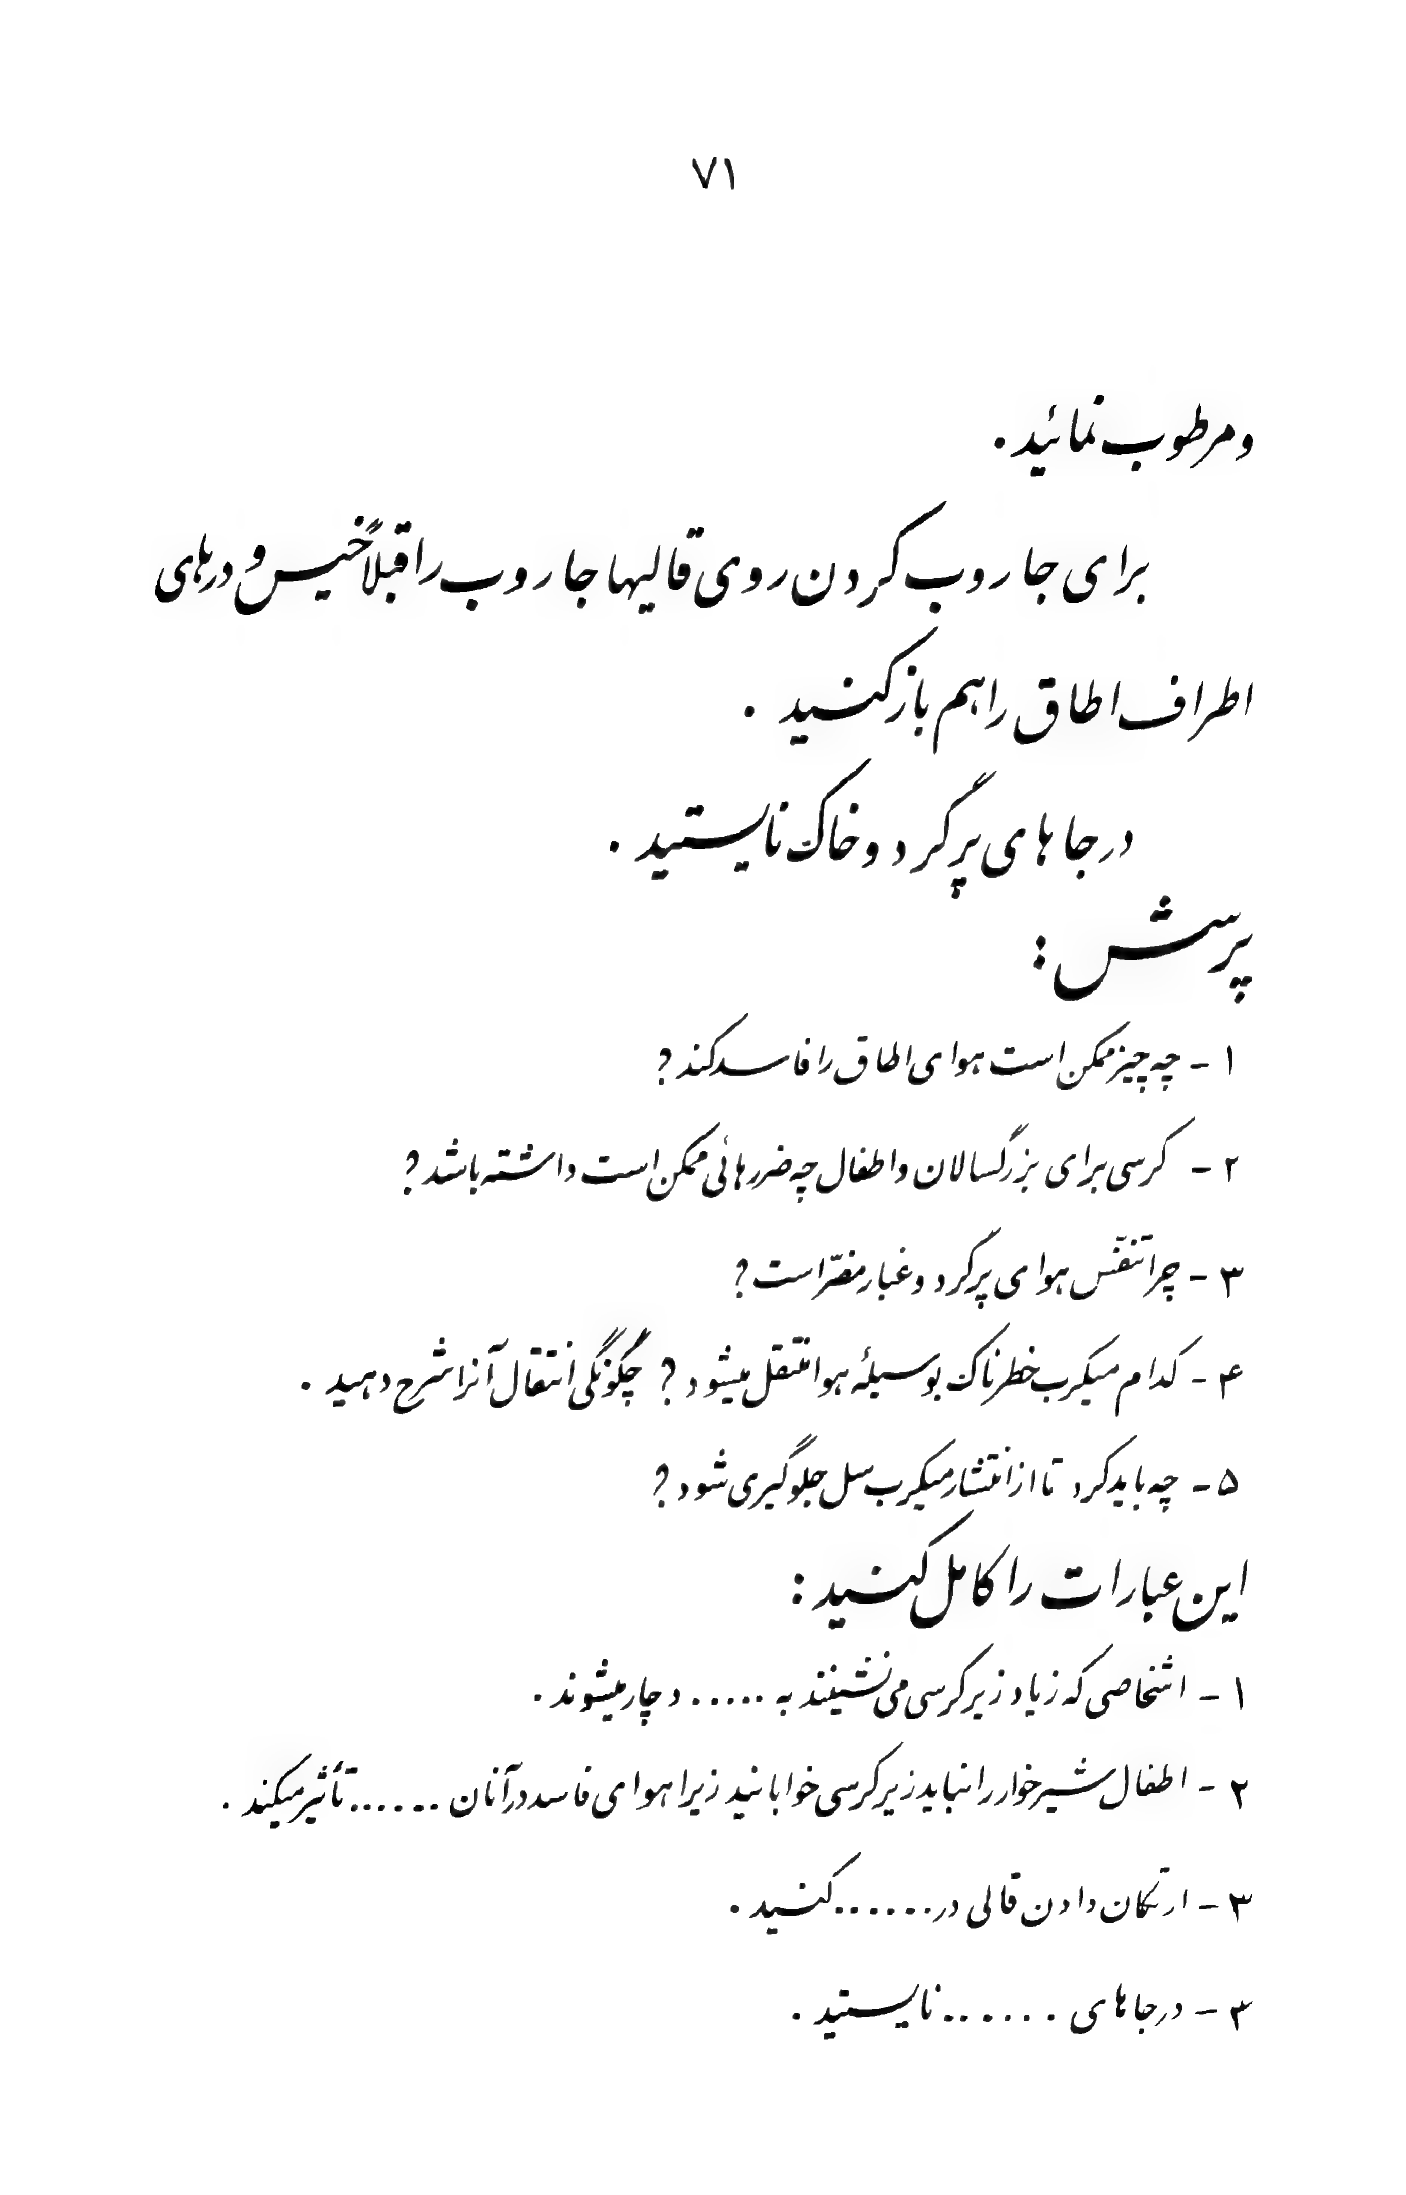 ۷۱
و مرطوب نمائید .
برای جاروب کردن روی قالیها جاروب را قبلاً خیس و درهای
اطراف اطاق را هم باز کنید .
در جاهای پر گرد و خاک نایستید .
پرسش :
۱ - چه چیز ممکن است هوای اطاق را فاسد کند ؟
۲ - کرسی برای بزرگسالان و اطفال چه ضررهائی ممکن است داشته باشد ؟
۳ - چرا تنفّس هوای پر گرد و غبار مضرّ است ؟
۴ - کدام میکرب خطرناک بوسیلهٔ هوا منتقل میشود ؟ چگونگی انتقال آنرا شرح دهید .
۵ - چه باید کرد تا از انتشار میکرب سل جلوگیری شود ؟
این عبارات را کامل کنید :
۱ - اشخاصی که زیاد زیر کرسی می نشینند به ...... دچار میشوند .
۲ - اطفال شیرخوار را نباید زیر کرسی خوابانید زیرا هوای فاسد در آنان ...... تأثیر میکند .
۳ - از تکان دادن قالی در ...... کنید .
۴ - در جاهای ...... نایستید .